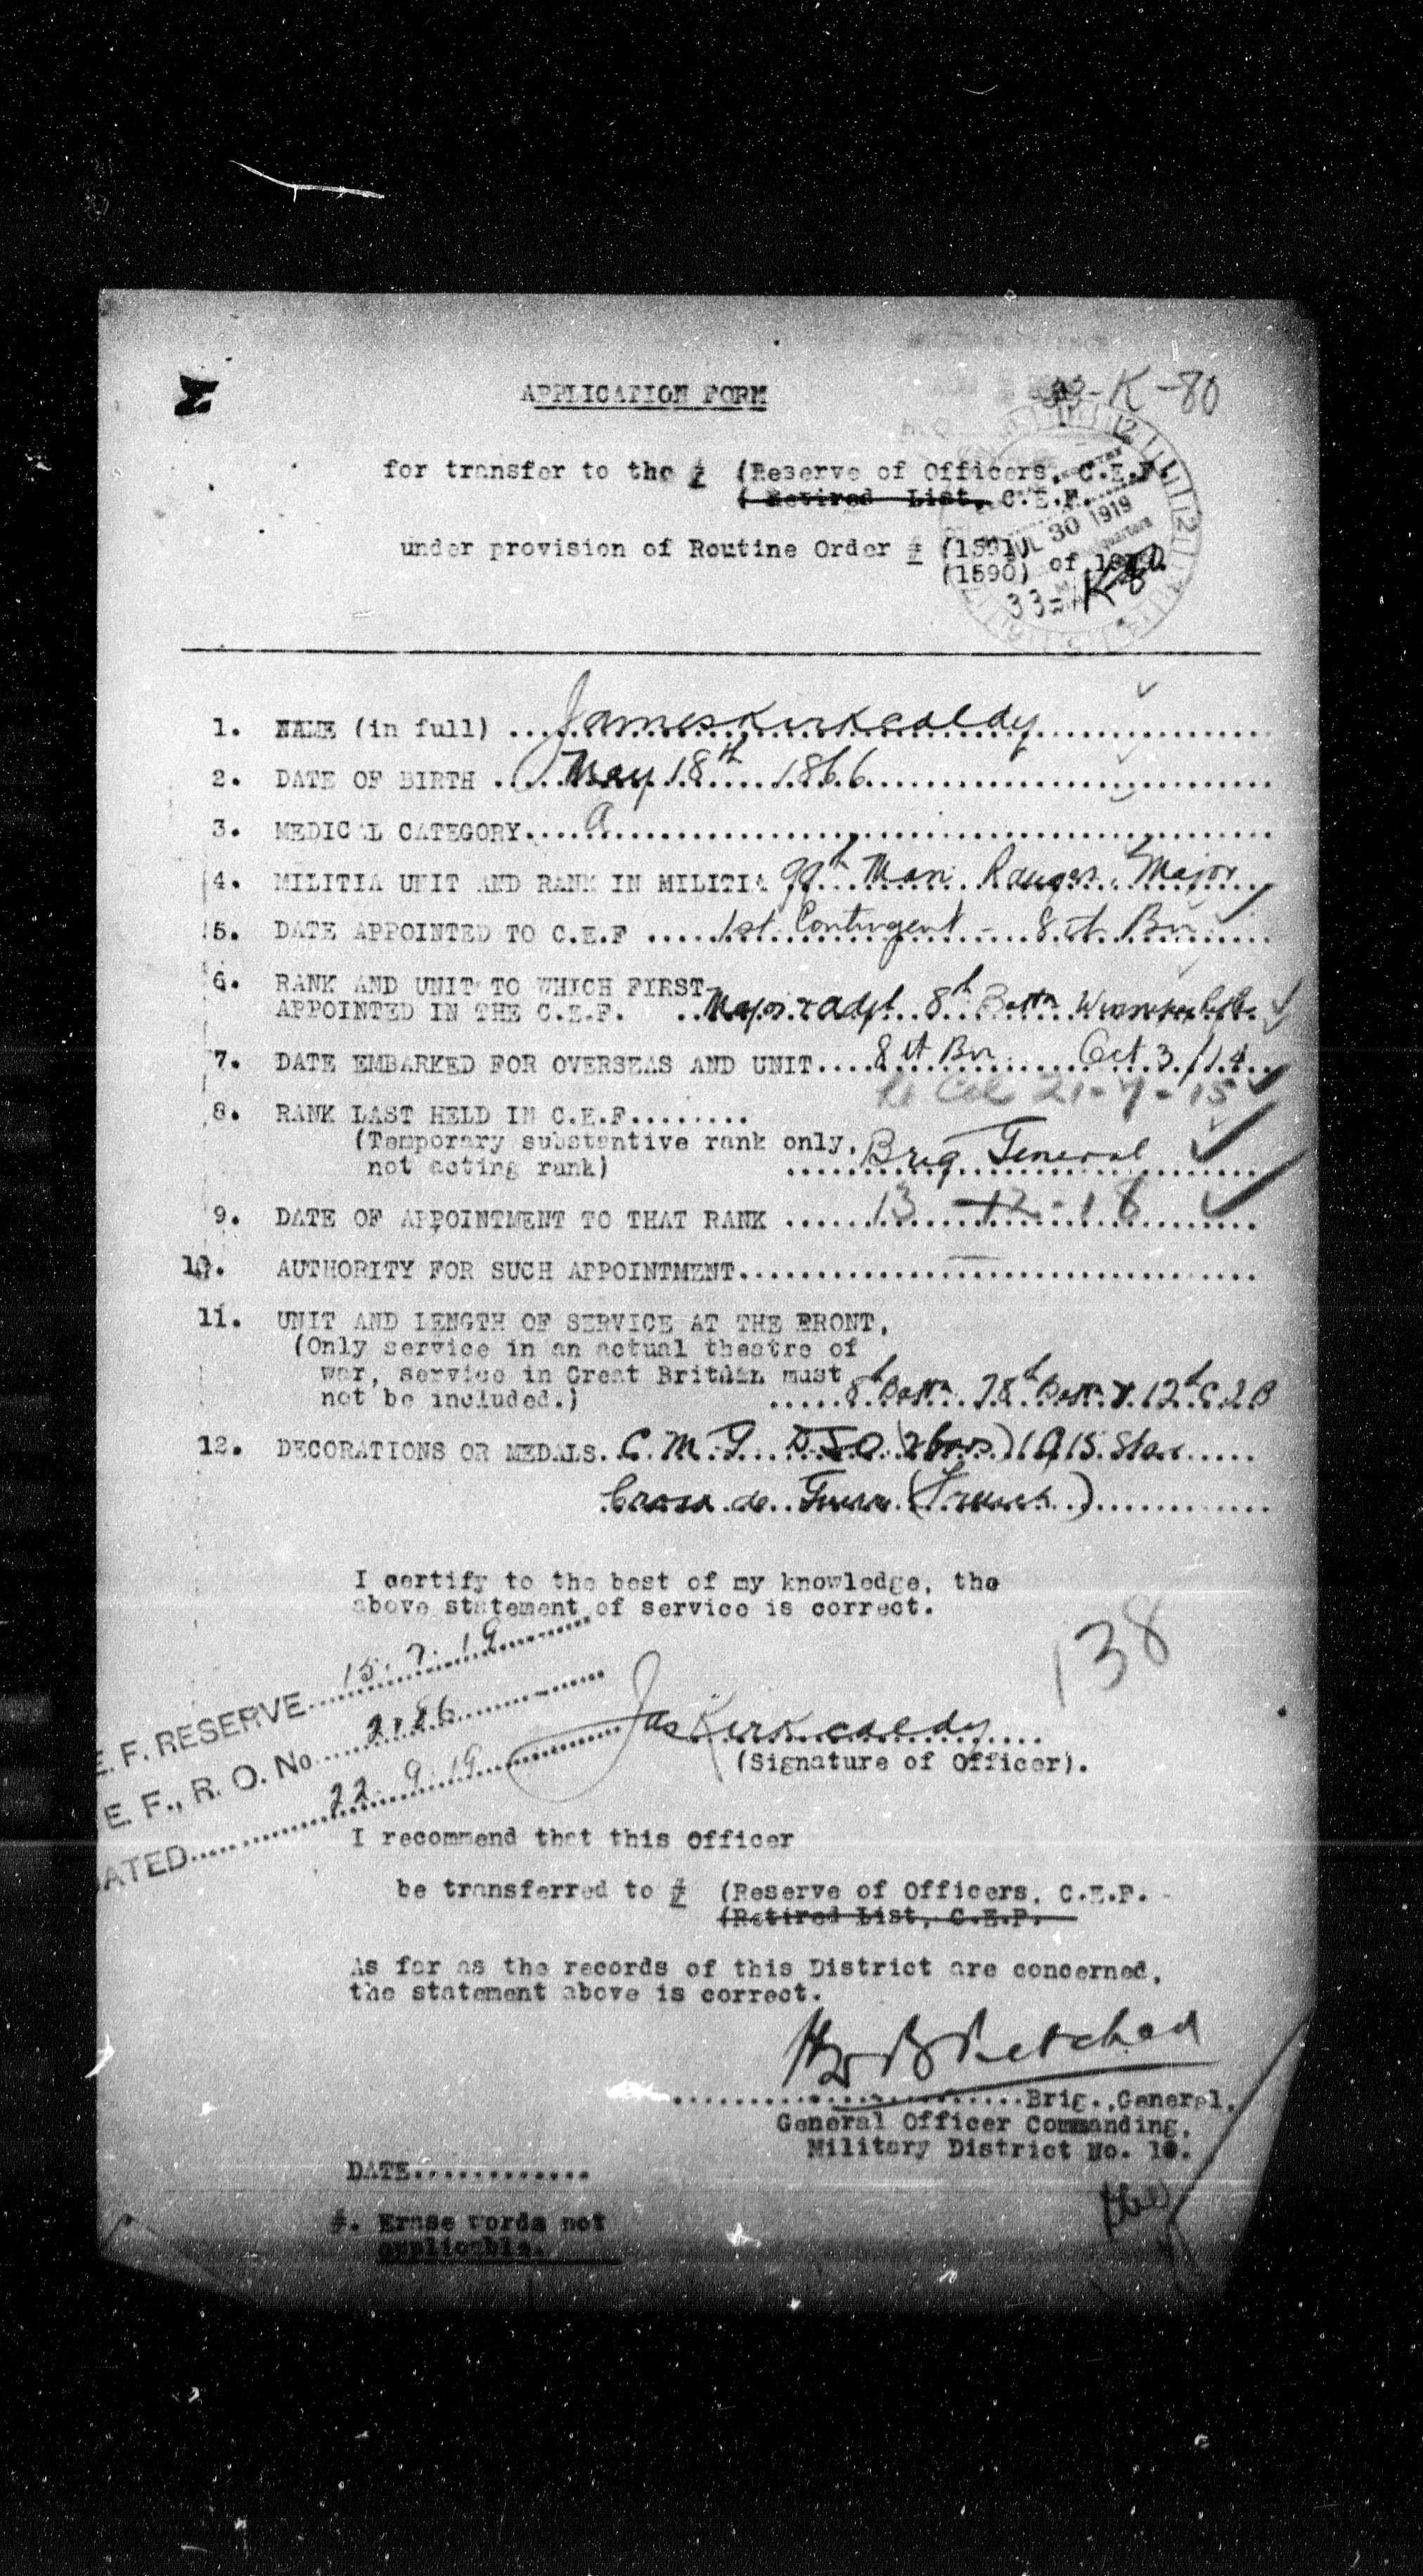 APPLICATION FORM
33-K-80
for transfer to the # (Reserve of Officers, C.E.F.
( Retired List, C.E.F.
JUL 30 1919
under provision of Routine Order # (1591)
(1590) of
33-K-80
1. NAME (in full) ....James Kirkcaldy....
2. DATE OF BIRTH ....May 18th 1866....
3. MEDICAL CATEGORY....A....
4. MILITIA UNIT AND RANK IN MILITIA 99th Man. Rangers. Major
5. DATE APPOINTED TO C.E.F ....1st Contingent - 8th Bn....
6. RANK AND UNIT TO WHICH FIRST
APPOINTED IN THE C.E.F. ..Major & Adjt. 8th Battn
7. DATE EMBARKED FOR OVERSEAS AND UNIT....8th Bn. Oct 3/14
Lt Col 21-7-15
8. RANK LAST HELD IN C.E.F.........
(Temporary substantive rank only,
not acting rank) ....Brig General....
9. DATE OF APPOINTMENT TO THAT RANK ....13-12-18....
10. AUTHORITY FOR SUCH APPOINTMENT....—....
11. UNIT AND LENGTH OF SERVICE AT THE FRONT,
(Only service in an actual theatre of
war, service in Great Britain must
not be included.) ....8th Battn. 78th Battn & 12th C.I.B
12. DECORATIONS OR MEDALS. C.M.G. DSO (2 bars) 1915 Star....
Croix de Guerre (French)....
I certify to the best of my knowledge, the
above statement of service is correct.
138
E. F. RESERVE....15.7.19....
E. F., R. O. No....2126....
DATED....22.9.19....
Jas Kirkcaldy....
(Signature of Officer).
I recommend that this Officer
be transferred to # (Reserve of Officers, C.E.F.
(Retired List, C.E.F.
As far as the records of this District are concerned,
the statement above is correct.
....Brig.,General,
General Officer Commanding,
Military District No. 10.
DATE.............
#. Erase words not
applicable.